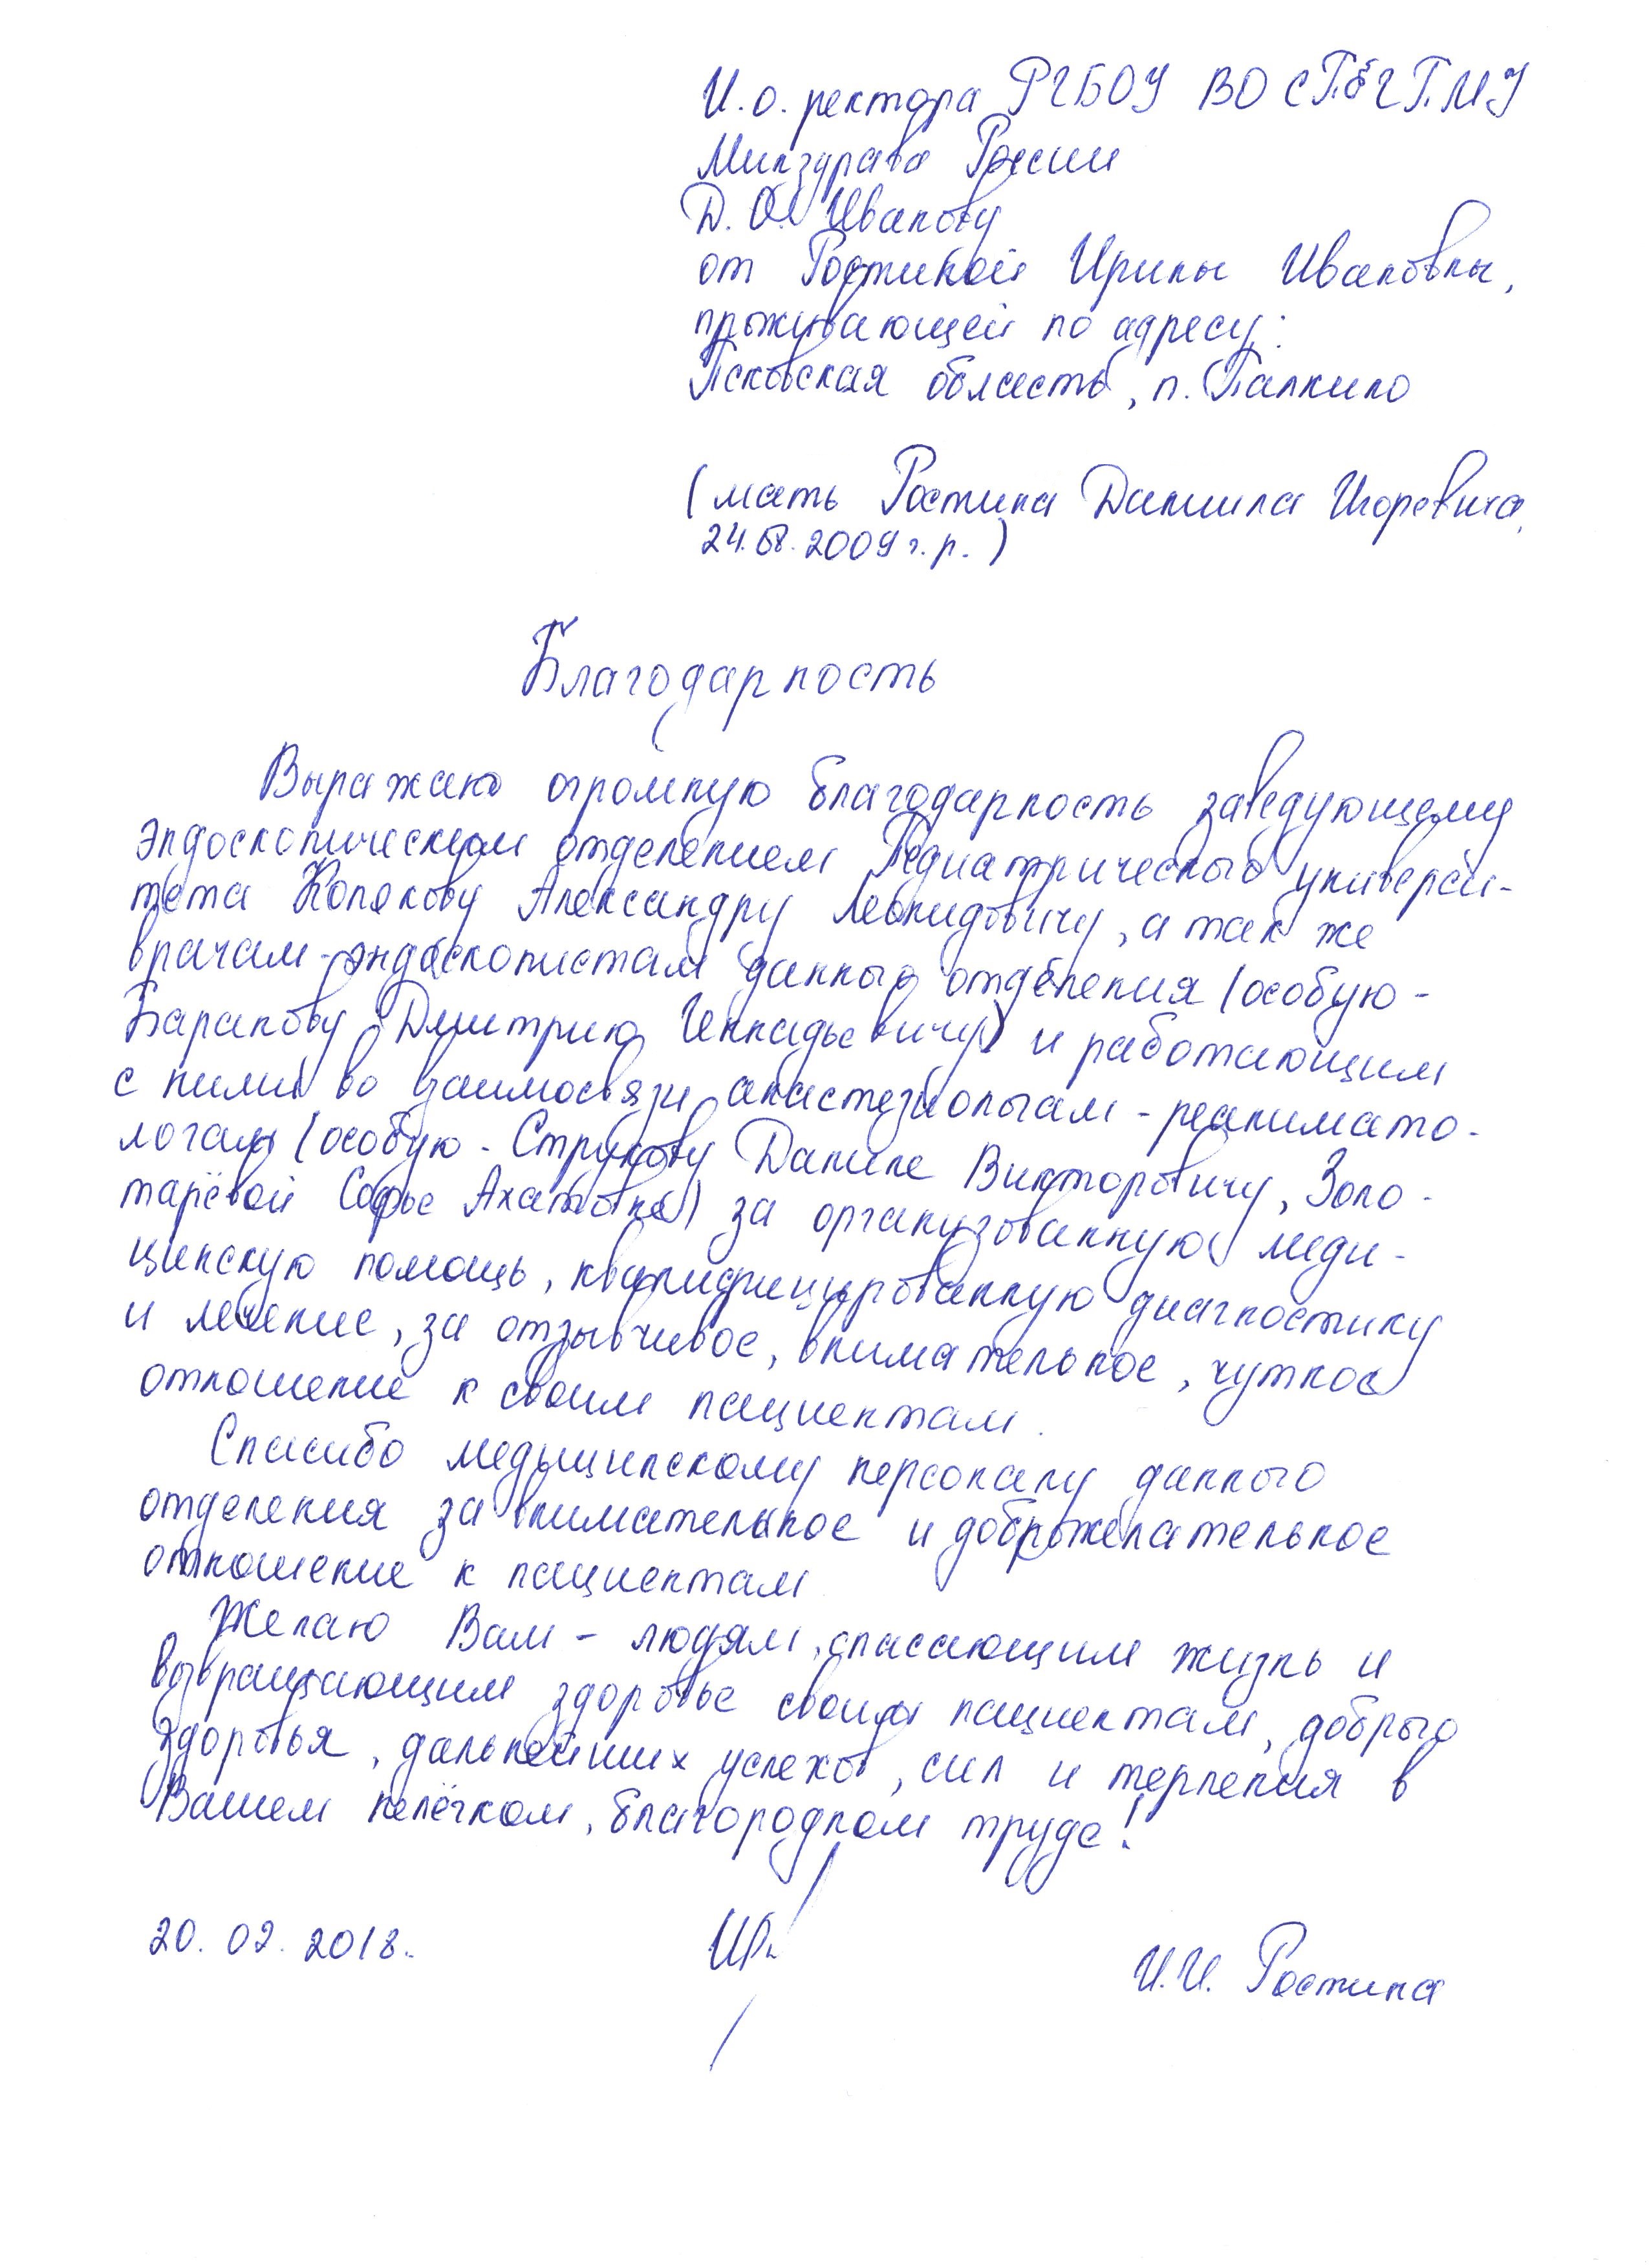 И.о. ректора ФГБОУ ВО СПбГПМУ
Минздрава России
Д.О. Иванову
от Ростиной Ирины Ивановны,
проживающей по адресу:
Псковская область, п. Палкино
(мать Ростина Даниила Игоревича,
24. 2009 г.р.)
Благодарность
Выражаю огромную благодарность заведующему
эндоскопическим отделением Педиатрического универси-
тета Колякову Александру Леонидовичу, а так же
врачам-эндоскопистам данного отделения (особую -
Баранову Дмитрию Геннадьевичу) и работающим
с ними во взаимосвязи анастезиологам-реанимато-
логам (особую - Струкову Даниле Викторовичу, Золо-
тарёвой Софье Ахатовне) за организованную меди-
цинскую помощь, квалифицированную диагностику
и лечение, за отзывчивое, внимательное, чуткое
отношение к своим пациентам.
Спасибо медицинскому персоналу данного
отделения за внимательное и доброжелательное
отношение к пациентам
Желаю Вам - людям, спасающим жизнь и
возвращающим здоровье своим пациентам, доброго
здоровья, дальнейших успехов, сил и терпения в
Вашем нелёгком, благородном труде!
20.02.2018. И.И. Ростина